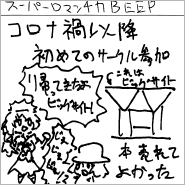 スーパーロマンチカBEEP
コロナ禍以降
初めてのサークル参加
帰ってきたよ
ビッグサイト!
これは
ビッグサイト
本売れて
よかった